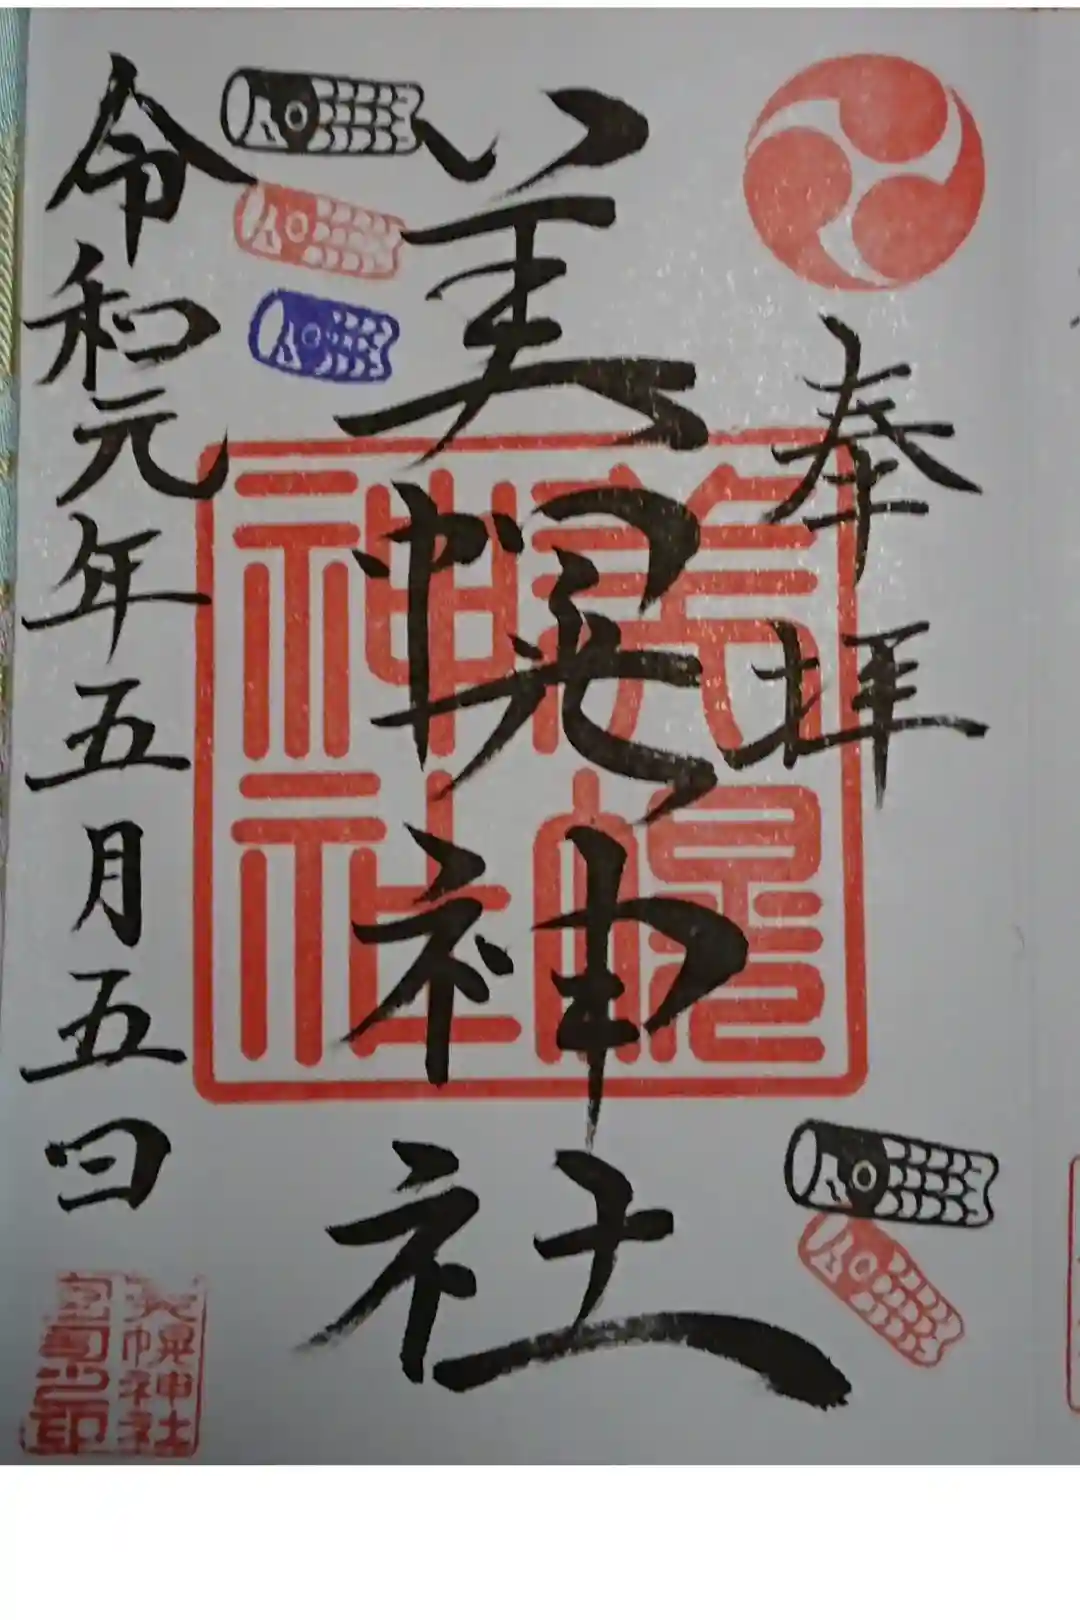 奉拝
美幌神社
美幌神社
令和元年五月五日
美幌神社
宮司之印